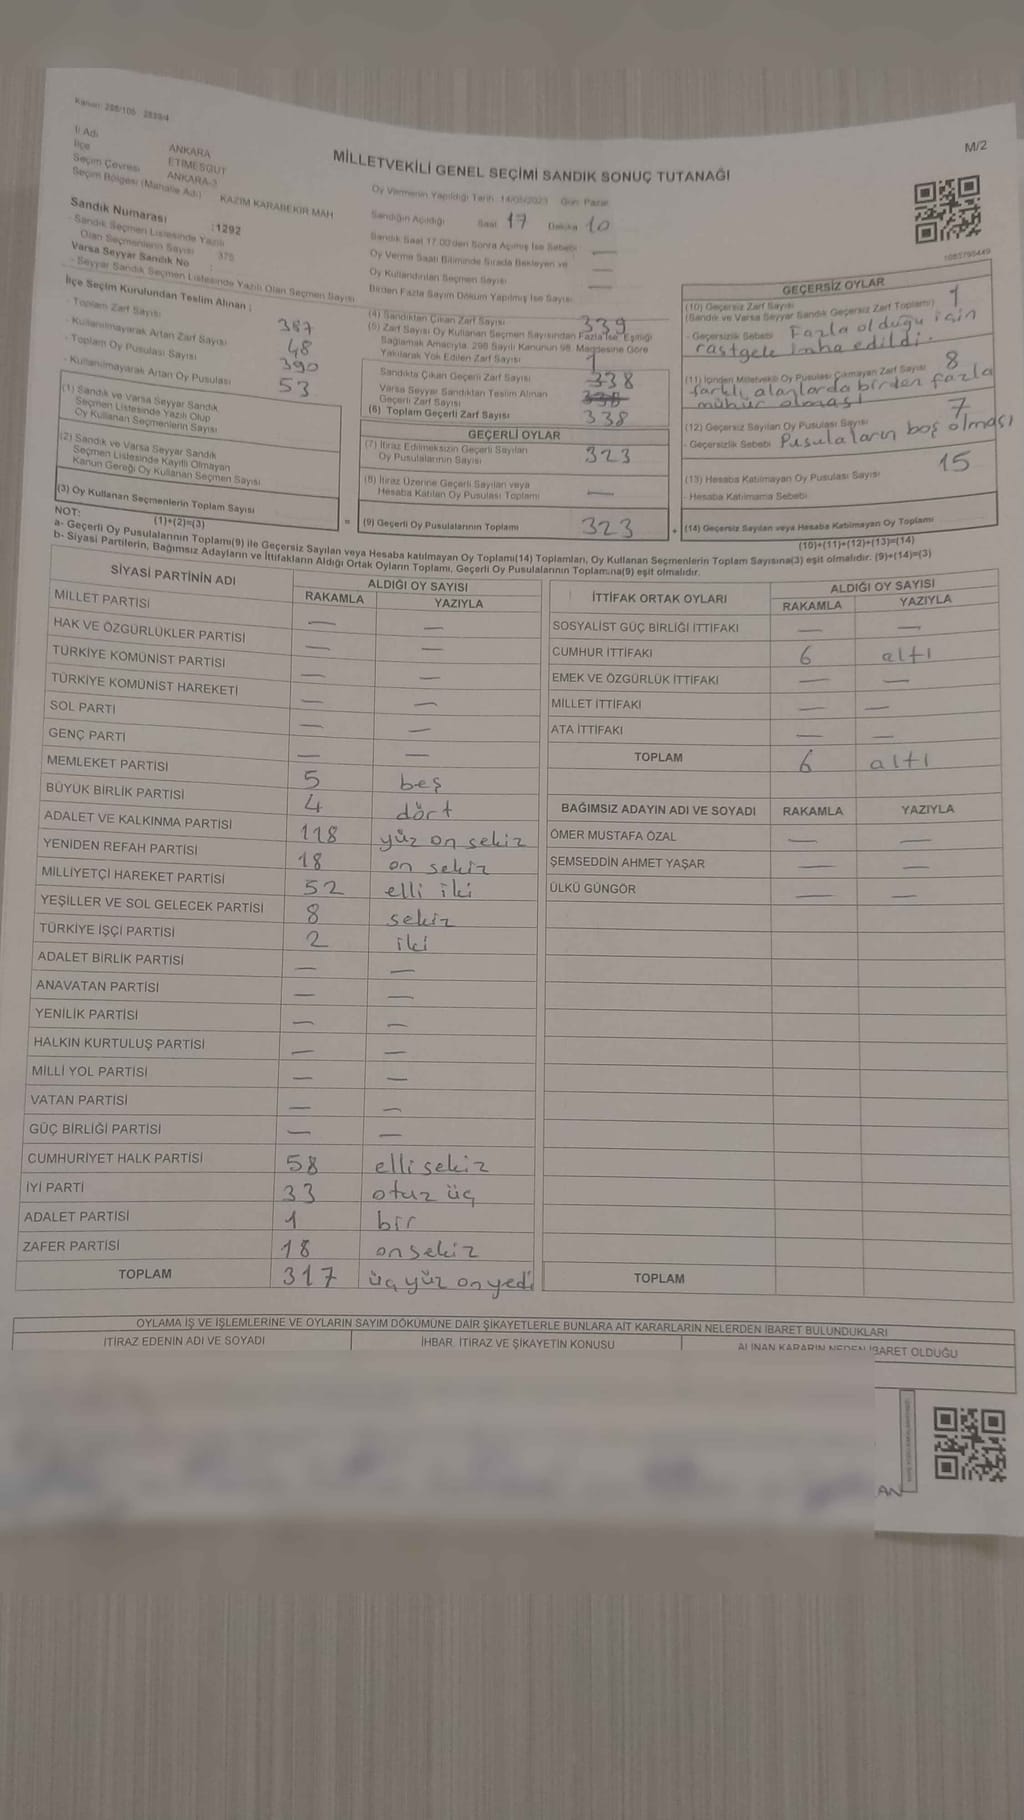 Kanun: 298/105 2839/4
M/2
İl Adı ANKARA
İlçe ETİMESGUT
Seçim Çevresi ANKARA-3
Seçim Bölgesi (Mahalle Adı) KAZIM KARABEKİR MAH
MİLLETVEKİLİ GENEL SEÇİMİ SANDIK SONUÇ TUTANAĞI
Oy Vermenin Yapıldığı Tarih :14/05/2023 Gün: Pazar
Sandık Numarası :1292
Sandığın Açıldığı Saat 17 Dakika 10
- Sandık Seçmen Listesinde Yazılı
Olan Seçmenlerin Sayısı 375
Sandık Saat 17.00'den Sonra Açılmış İse Sebebi —
Varsa Seyyar Sandık No :
Oy Verme Saati Bitiminde Sırada Bekleyen ve
Oy Kullandırılan Seçmen Sayısı —
- Seyyar Sandık Seçmen Listesinde Yazılı Olan Seçmen Sayısı
Birden Fazla Sayım Döküm Yapılmış İse Sayısı —
İlçe Seçim Kurulundan Teslim Alınan :
- Toplam Zarf Sayısı 387
- Kullanılmayarak Artan Zarf Sayısı 48
- Toplam Oy Pusulası Sayısı 390
- Kullanılmayarak Artan Oy Pusulası 53
(1) Sandık ve Varsa Seyyar Sandık
Seçmen Listesinde Yazılı Olup
Oy Kullanan Seçmenlerin Sayısı
(2) Sandık ve Varsa Seyyar Sandık
Seçmen Listesinde Kayıtlı Olmayan
Kanun Gereği Oy Kullanan Seçmen Sayısı
(3) Oy Kullanan Seçmenlerin Toplam Sayısı
(1)+(2)=(3)
(4) Sandıktan Çıkan Zarf Sayısı 339
(5) Zarf Sayısı Oy Kullanan Seçmen Sayısından Fazla İse, Eşitliği
Sağlamak Amacıyla, 298 Sayılı Kanunun 98. Maddesine Göre
Yakılarak Yok Edilen Zarf Sayısı 1
Sandıkta Çıkan Geçerli Zarf Sayısı 338
Varsa Seyyar Sandıktan Teslim Alınan
Geçerli Zarf Sayısı 338
(6) Toplam Geçerli Zarf Sayısı 338
GEÇERLİ OYLAR
(7) İtiraz Edilmeksizin Geçerli Sayılan
Oy Pusulalarının Sayısı 323
(8) İtiraz Üzerine Geçerli Sayılan veya
Hesaba Katılan Oy Pusulası Toplamı —
= (9) Geçerli Oy Pusulalarının Toplamı 323 +
1085795449
GEÇERSİZ OYLAR
(10) Geçersiz Zarf Sayısı 1
(Sandık ve Varsa Seyyar Sandık Geçersiz Zarf Toplamı)
- Geçersizlik Sebebi Fazla olduğu için
rastgele imha edildi.
(11) İçinden Milletvekili Oy Pusulası Çıkmayan Zarf Sayısı 8
farklı alanlarda birden fazla
mühür olması
(12) Geçersiz Sayılan Oy Pusulası Sayısı 7
- Geçersizlik Sebebi Pusulaların boş olması
(13) Hesaba Katılmayan Oy Pusulası Sayısı 15
- Hesaba Katılmama Sebebi
(14) Geçersiz Sayılan veya Hesaba Katılmayan Oy Toplamı
(10)+(11)+(12)+(13)=(14)
NOT:
a- Geçerli Oy Pusulalarının Toplamı(9) ile Geçersiz Sayılan veya Hesaba katılmayan Oy Toplamı(14) Toplamları, Oy Kullanan Seçmenlerin Toplam Sayısına(3) eşit olmalıdır. (9)+(14)=(3)
b- Siyasi Partilerin, Bağımsız Adayların ve İttifakların Aldığı Ortak Oyların Toplamı, Geçerli Oy Pusulalarının Toplamına(9) eşit olmalıdır.
SİYASİ PARTİNİN ADI ALDIĞI OY SAYISI
RAKAMLA YAZIYLA
MİLLET PARTİSİ — —
HAK VE ÖZGÜRLÜKLER PARTİSİ — —
TÜRKİYE KOMÜNİST PARTİSİ — —
TÜRKİYE KOMÜNİST HAREKETİ — —
SOL PARTİ — —
GENÇ PARTİ — —
MEMLEKET PARTİSİ 5 beş
BÜYÜK BİRLİK PARTİSİ 4 dört
ADALET VE KALKINMA PARTİSİ 118 yüz on sekiz
YENİDEN REFAH PARTİSİ 18 on sekiz
MİLLİYETÇİ HAREKET PARTİSİ 52 elli iki
YEŞİLLER VE SOL GELECEK PARTİSİ 8 sekiz
TÜRKİYE İŞÇİ PARTİSİ 2 iki
ADALET BİRLİK PARTİSİ — —
ANAVATAN PARTİSİ — —
YENİLİK PARTİSİ — —
HALKIN KURTULUŞ PARTİSİ — —
MİLLİ YOL PARTİSİ — —
VATAN PARTİSİ — —
GÜÇ BİRLİĞİ PARTİSİ — —
CUMHURİYET HALK PARTİSİ 58 elli sekiz
İYİ PARTİ 33 otuz üç
ADALET PARTİSİ 1 bir
ZAFER PARTİSİ 18 on sekiz
TOPLAM 317 üç yüz on yedi
İTTİFAK ORTAK OYLARI ALDIĞI OY SAYISI
RAKAMLA YAZIYLA
SOSYALİST GÜÇ BİRLİĞİ İTTİFAKI — —
CUMHUR İTTİFAKI 6 altı
EMEK VE ÖZGÜRLÜK İTTİFAKI — —
MİLLET İTTİFAKI — —
ATA İTTİFAKI — —
TOPLAM 6 altı
BAĞIMSIZ ADAYIN ADI VE SOYADI RAKAMLA YAZIYLA
ÖMER MUSTAFA ÖZAL — —
ŞEMSEDDİN AHMET YAŞAR — —
ÜLKÜ GÜNGÖR — —
TOPLAM
OYLAMA İŞ VE İŞLEMLERİNE VE OYLARIN SAYIM DÖKÜMÜNE DAİR ŞİKAYETLERLE BUNLARA AİT KARARLARIN NELERDEN İBARET BULUNDUKLARI
İTİRAZ EDENİN ADI VE SOYADI İHBAR, İTİRAZ VE ŞİKAYETİN KONUSU ALINAN KARARIN NEDEN İBARET OLDUĞU
AN